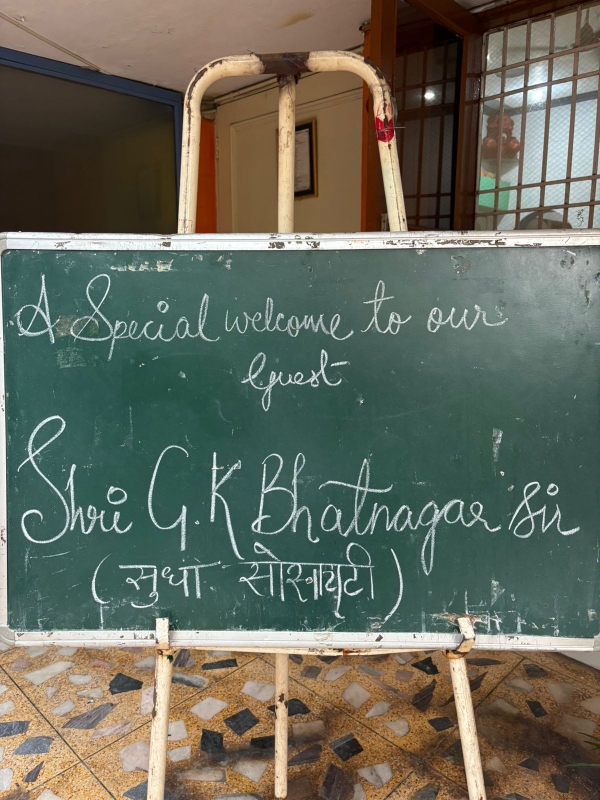 A Special welcome to our
Guest
Shri G.K Bhatnagar Sir
(सुधा सोसायटी)